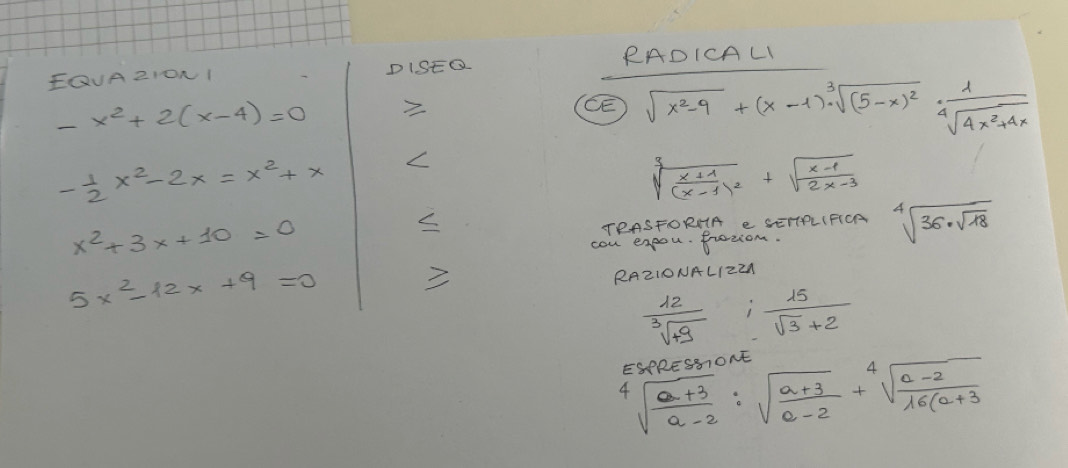 EQUAZIONI
- x² + 2(x-4) = 0
-1/2 x² - 2x = x² + x
x² + 3x + 10 = 0
5x² - 12x + 9 = 0
DISEQ
≥
<
≤
≥
RADICALI
CE √(x²-9) + (x-1)·∛((5-x)²) · 1/∜(4x²+4x
∛((x+1)/(x-1)²) + √((x-1)/(2x-3))
TRASFORMA e SEMPLIFICA ∜(36·√18)
con espon. frazion.
RAZIONALIZZA
12/∛(+9) ; 15/(√3+2)
ESPRESSIONE
∜((a+3)/(a-2)) : √((a+3)/(a-2)) + ∜((a-2)/(16(a+3